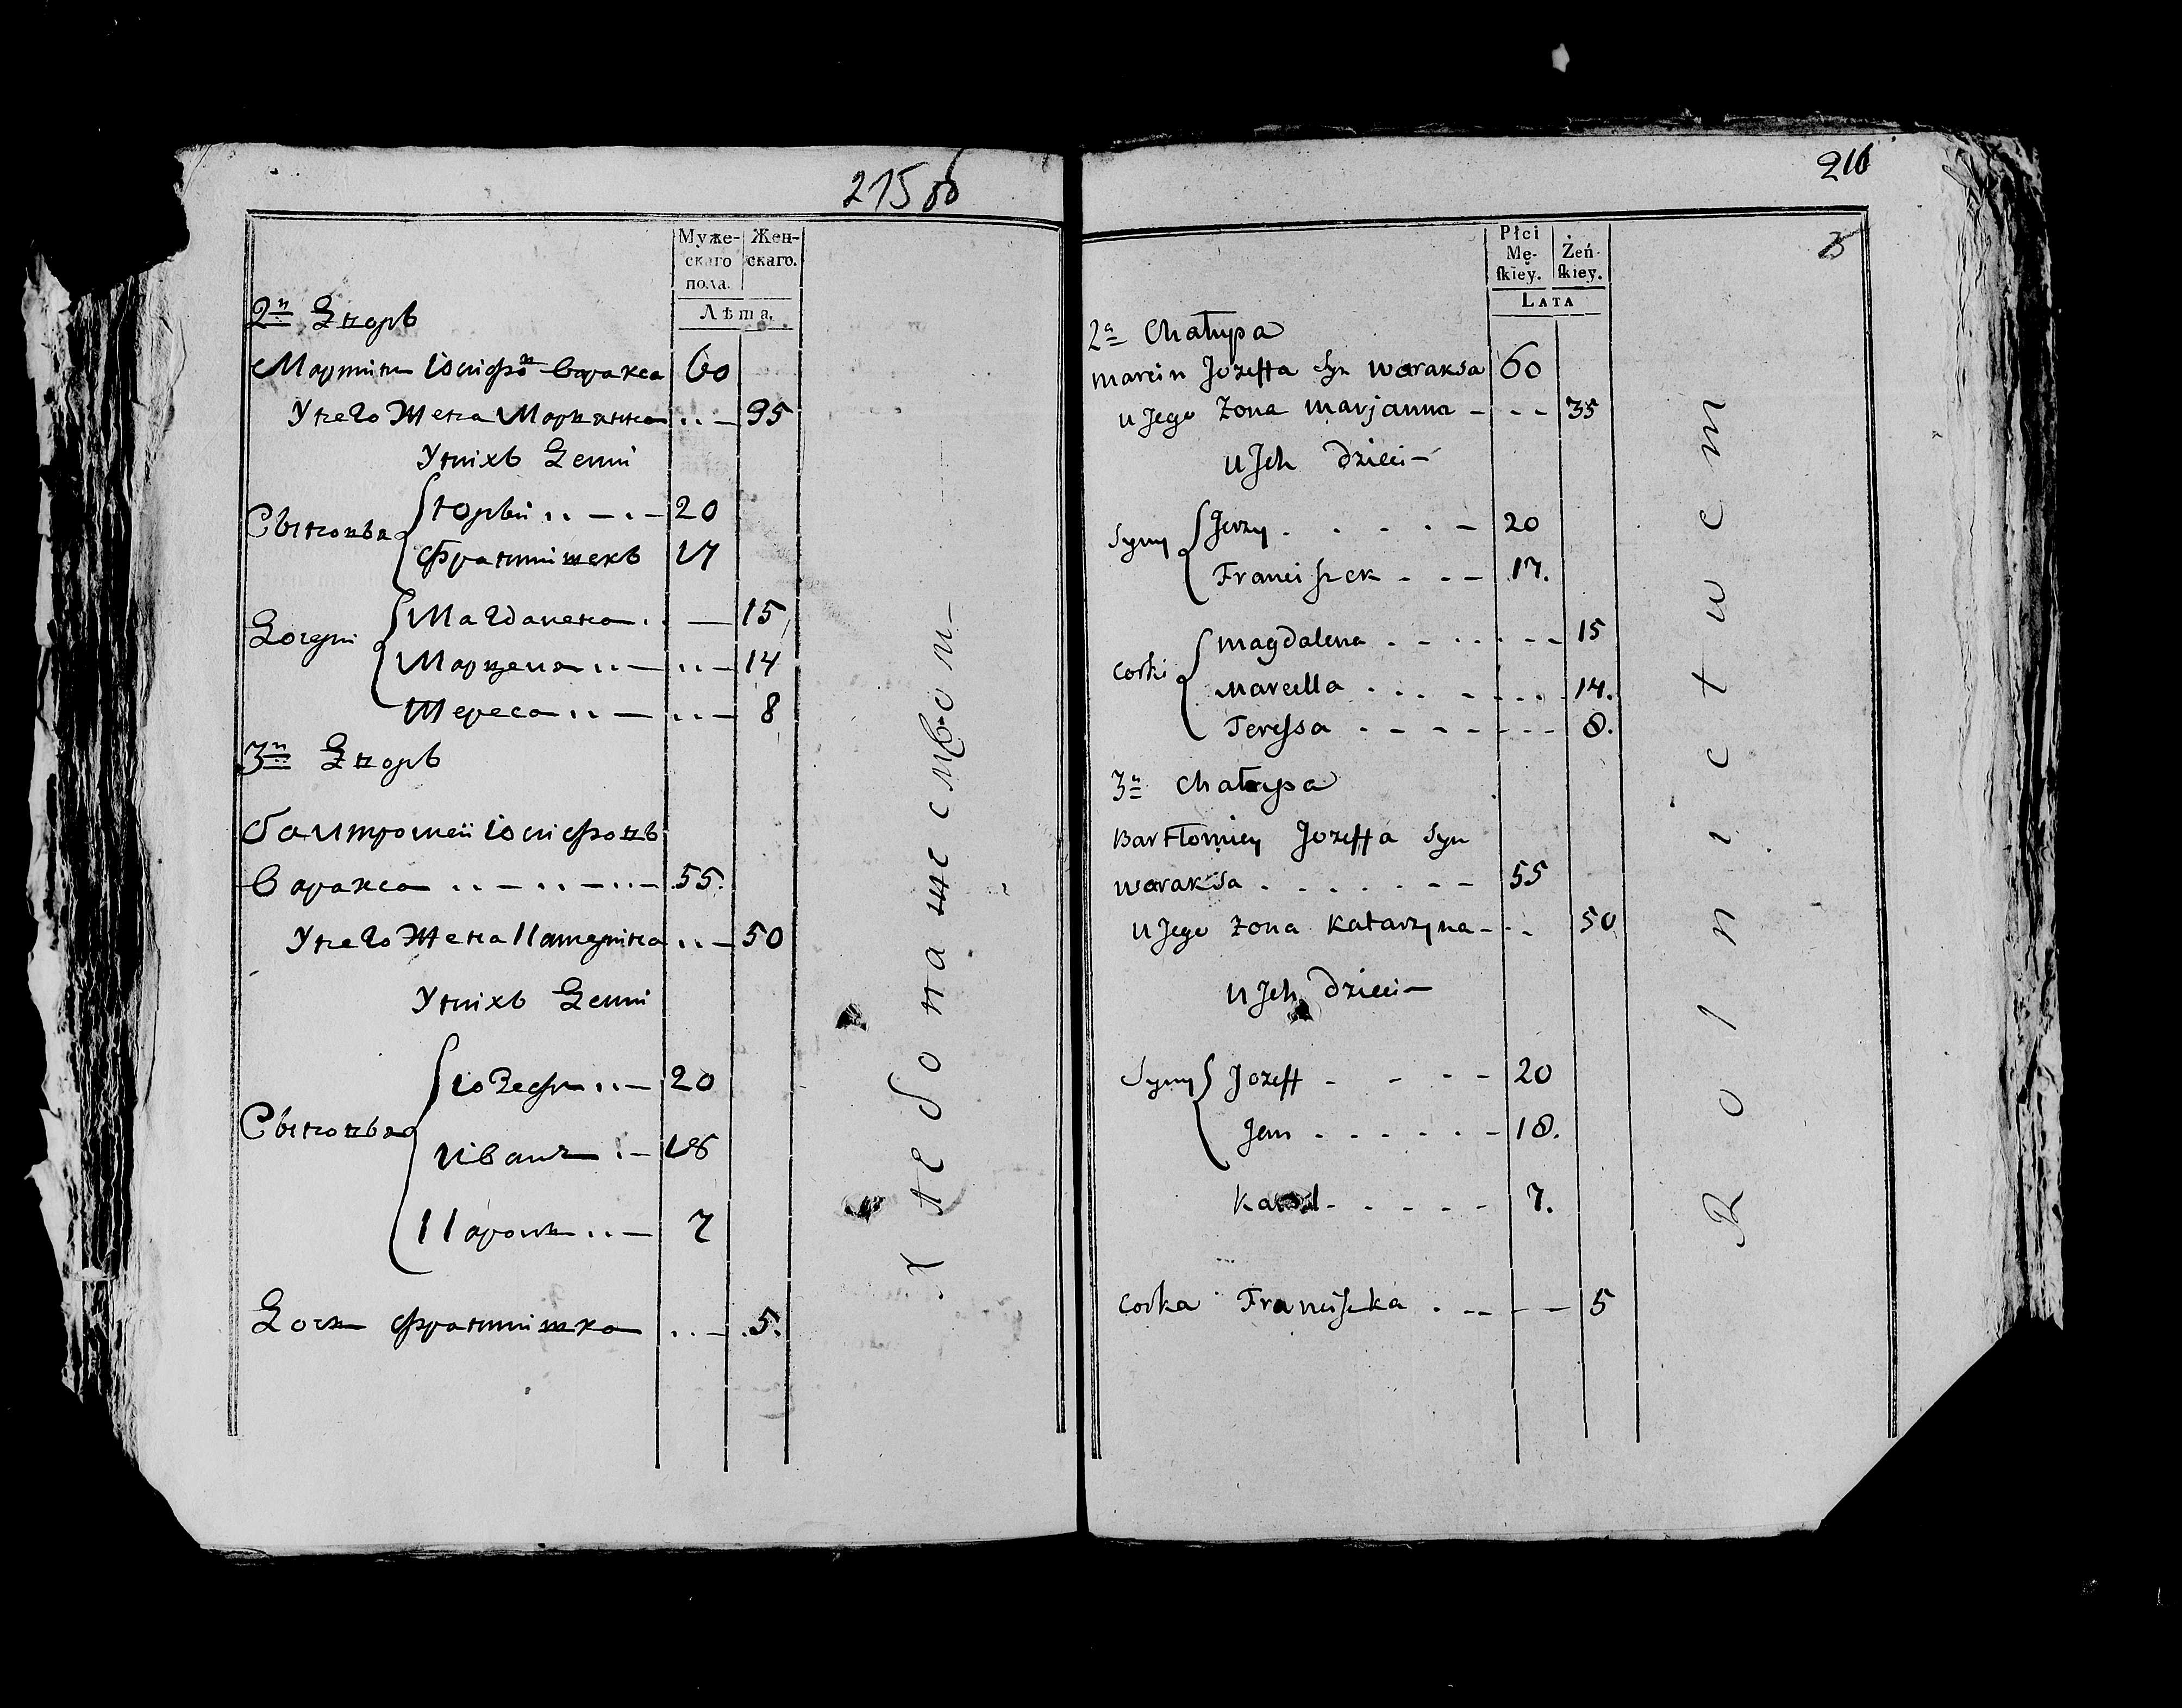 215 об
Муже- Жен-
скаго скаго.
пола.
Лѣта.
2й Дворъ
Мартинъ ІосифовъВаракса 60
У него Жена Марианна 95
У нихъ Дети
Сыновья Юрьи 20
Францишекъ 17
Дочери Магдалена 15
Марцела 14
Тереса 8
3й Дворъ
Балтромей Іосифовъ
Варакса 55.
У него Жена Катерина 50
У нихъ Дети
Сыновья Іозефъ 20
Иванъ 18
Кароль 7
Дочь Францишка 5.
Хлебопашеством
216
3
Płci
Mę- Żeń-
ſkiey. ſkiey.
LATA
2a Chałupa
marcin Jozeffa Syn waraksa 60
u Jego żona marjanna - - - 35
u Jch dzieci -
Syny Jerzy . . . . . - 20
Franciszek . - - 17.
Corki magdalena . - - . . - - 15
marcella . . . - . . . - 14.
Teressa . - - - - - - - 8.
3a Chałupa
Bartłomiey Jozeffa Syn
waraksa . . . . . . - - 55
u Jego żona Katarzyna - - - 50
u Jch dzieci -
Syny Jozeff - - - - 20
Jan . . . . . . - 18.
Karol - . - . - - 7.
Corka Franciszka . - - - - 5
Rolnictwem